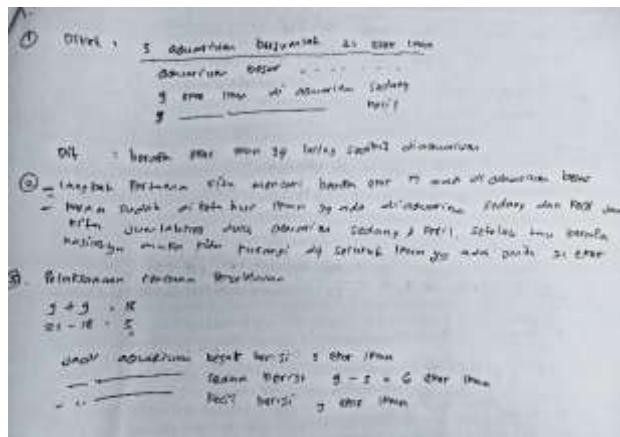 ① Diket : 3 aquarium berjumlah 21 ekor ikan
aquarium besar . . . . . .
9 ekor ikan di aquarium sedang
9 kecil
Dit : berapa ekor ikan yg paling sedikit diaquarium
② - langkah Pertama kita mencari berapa ekor di aquarium besar
- sudah di ikan yg ada di aquarium sedang dan kecil
kita jumlahkan dulu aquarium sedang & kecil, setelah berapa
hasilnya maka kita kurangi dg seluruh ikan yg ada yaitu 21 ekor
3). Pelaksanaan
9 + 9 = 18
21 - 18 = 3
Jadi aquarium besar berisi 3 ekor ikan
berisi 9 - 3 = 6 ekor ikan
kecil berisi 9 ekor ikan